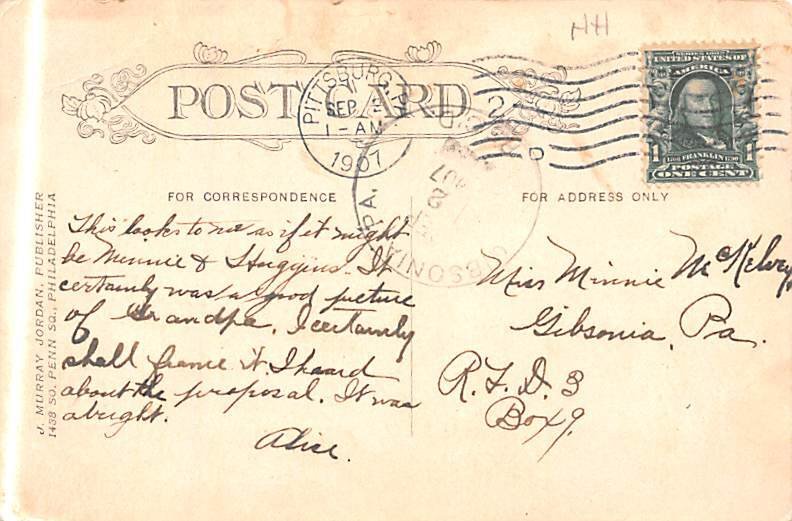 HH
POST CARD
PITTSBURG, PA.
SEP
1-AM
1907
2
D
GIBSONIA, PA.
SERIES 1902
UNITED STATES OF
AMERICA
1 FRANKLIN 1790 1
POSTAGE
ONE CENT
FOR CORRESPONDENCE
This looks to me as if it might
be Minnie & Huggins. It
certainly was a good picture
of Grandpa. I certainly
shall frame it. I heard
about the proposal. It was
alright.
Alice.
FOR ADDRESS ONLY
Miss Minnie McKelvey
Gibsonia, Pa.
R.F.D. 3
Box 9.
J. MURRAY JORDAN, PUBLISHER
1438 SO. PENN SQ., PHILADELPHIA